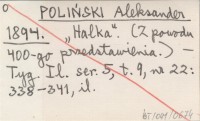 POLIŃSKI Aleksander
1894. „Halka". (Z powodu
400-go przedstawienia.) -
Tyg. Il. ser. 5, t. 9, na 22:
338-341, il.